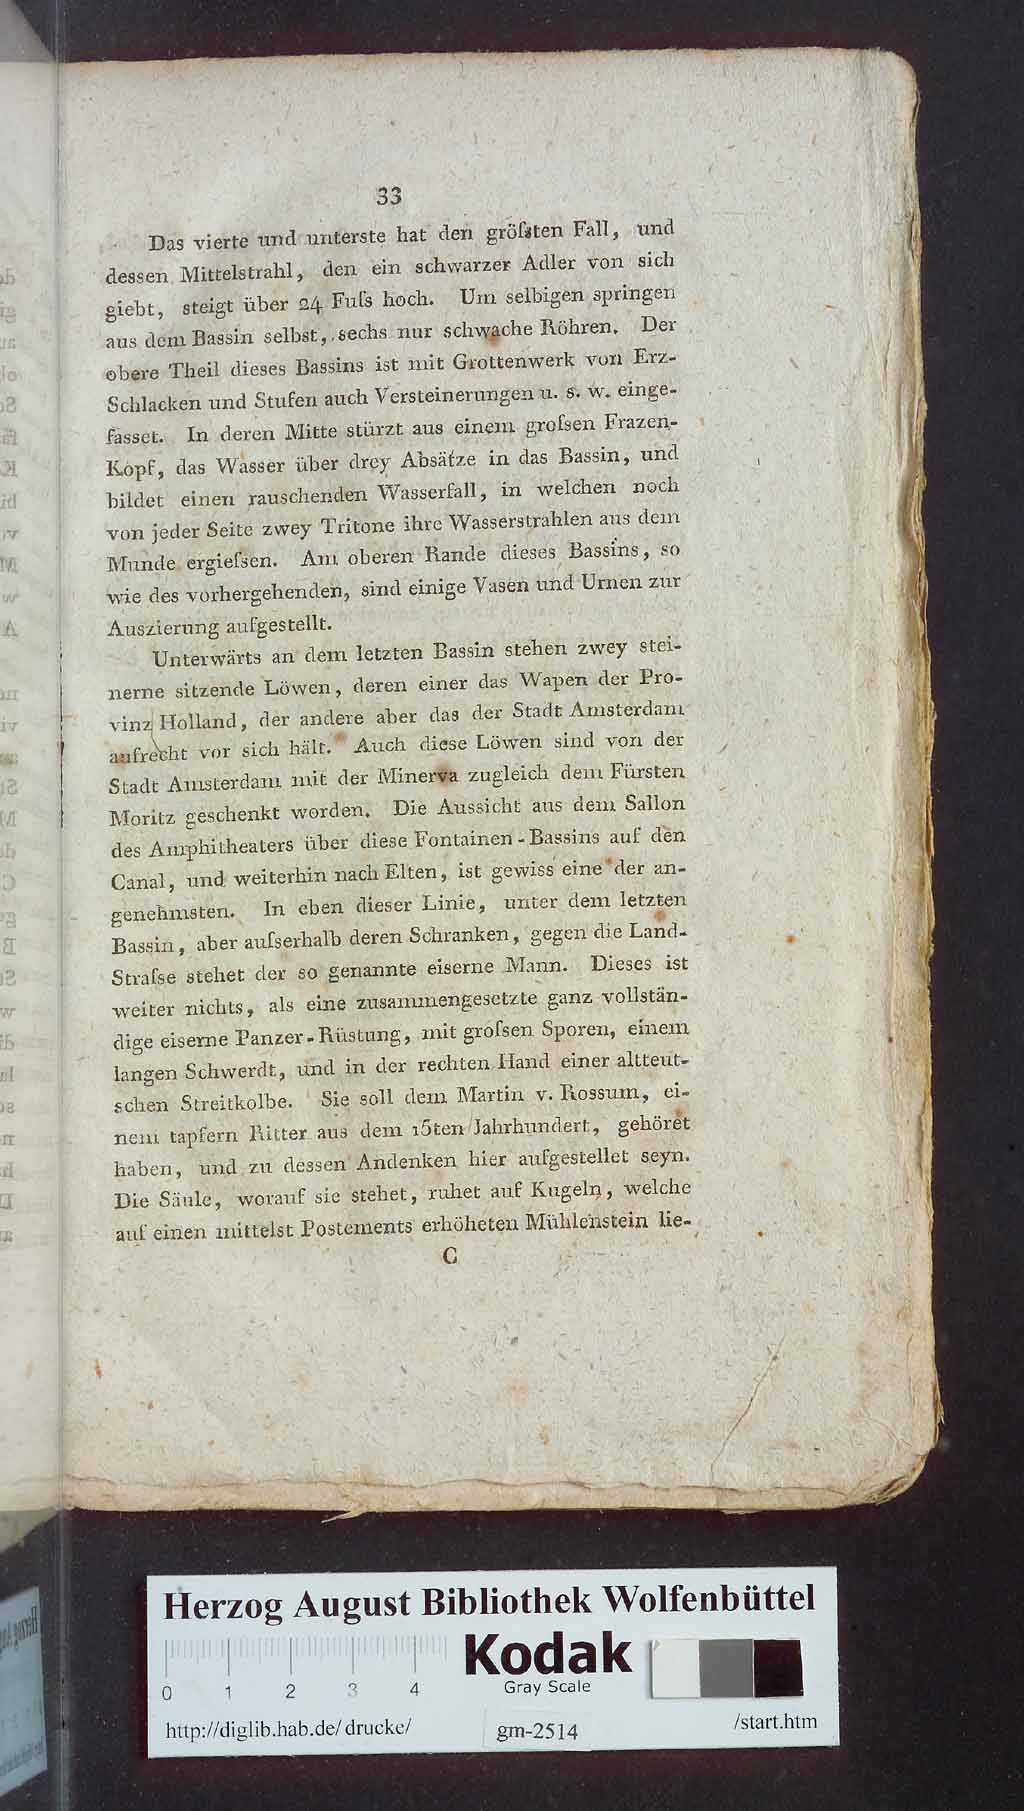 33
Das vierte und unterste hat den gröſsten Fall, und
dessen Mittelstrahl, den ein schwarzer Adler von sich
giebt, steigt über 24 Fuſs hoch. Um selbigen springen
aus dem Bassin selbst, sechs nur schwache Röhren. Der
obere Theil dieses Bassins ist mit Grottenwerk von Erz-
Schlacken und Stufen auch Versteinerungen u. s. w. einge-
fasset. In deren Mitte stürzt aus einem groſsen Frazen-
Kopf, das Wasser über drey Absätze in das Bassin, und
bildet einen rauschenden Wasserfall, in welchen noch
von jeder Seite zwey Tritone ihre Wasserstrahlen aus dem
Munde ergieſsen. Am oberen Rande dieses Bassins, so
wie des vorhergehenden, sind einige Vasen und Urnen zur
Auszierung aufgestellt.
Unterwärts an dem letzten Bassin stehen zwey stei-
nerne sitzende Löwen, deren einer das Wapen der Pro-
vinz Holland, der andere aber das der Stadt Amsterdam
aufrecht vor sich hält. Auch diese Löwen sind von der
Stadt Amsterdam mit der Minerva zugleich dem Fürsten
Moritz geschenkt worden. Die Aussicht aus dem Sallon
des Amphitheaters über diese Fontainen-Bassins auf den
Canal, und weiterhin nach Elten, ist gewiss eine der an-
genehmsten. In eben dieser Linie, unter dem letzten
Bassin, aber auſserhalb deren Schranken, gegen die Land-
Straſse stehet der so genannte eiserne Mann. Dieses ist
weiter nichts, als eine zusammengesetzte ganz vollstän-
dige eiserne Panzer-Rüstung, mit groſsen Sporen, einem
langen Schwerdt, und in der rechten Hand einer altteut-
schen Streitkolbe. Sie soll dem Martin v. Rossum, ei-
nem tapfern Ritter aus dem 15ten Jahrhundert, gehöret
haben, und zu dessen Andenken hier aufgestellet seyn.
Die Säule, worauf sie stehet, ruhet auf Kugeln, welche
auf einen mittelst Postements erhöheten Mühlenstein lie-
C
Herzog August Bibliothek Wolfenbüttel
Kodak
Gray Scale
0 1 2 3 4
http://diglib.hab.de/drucke/ gm-2514 /start.htm